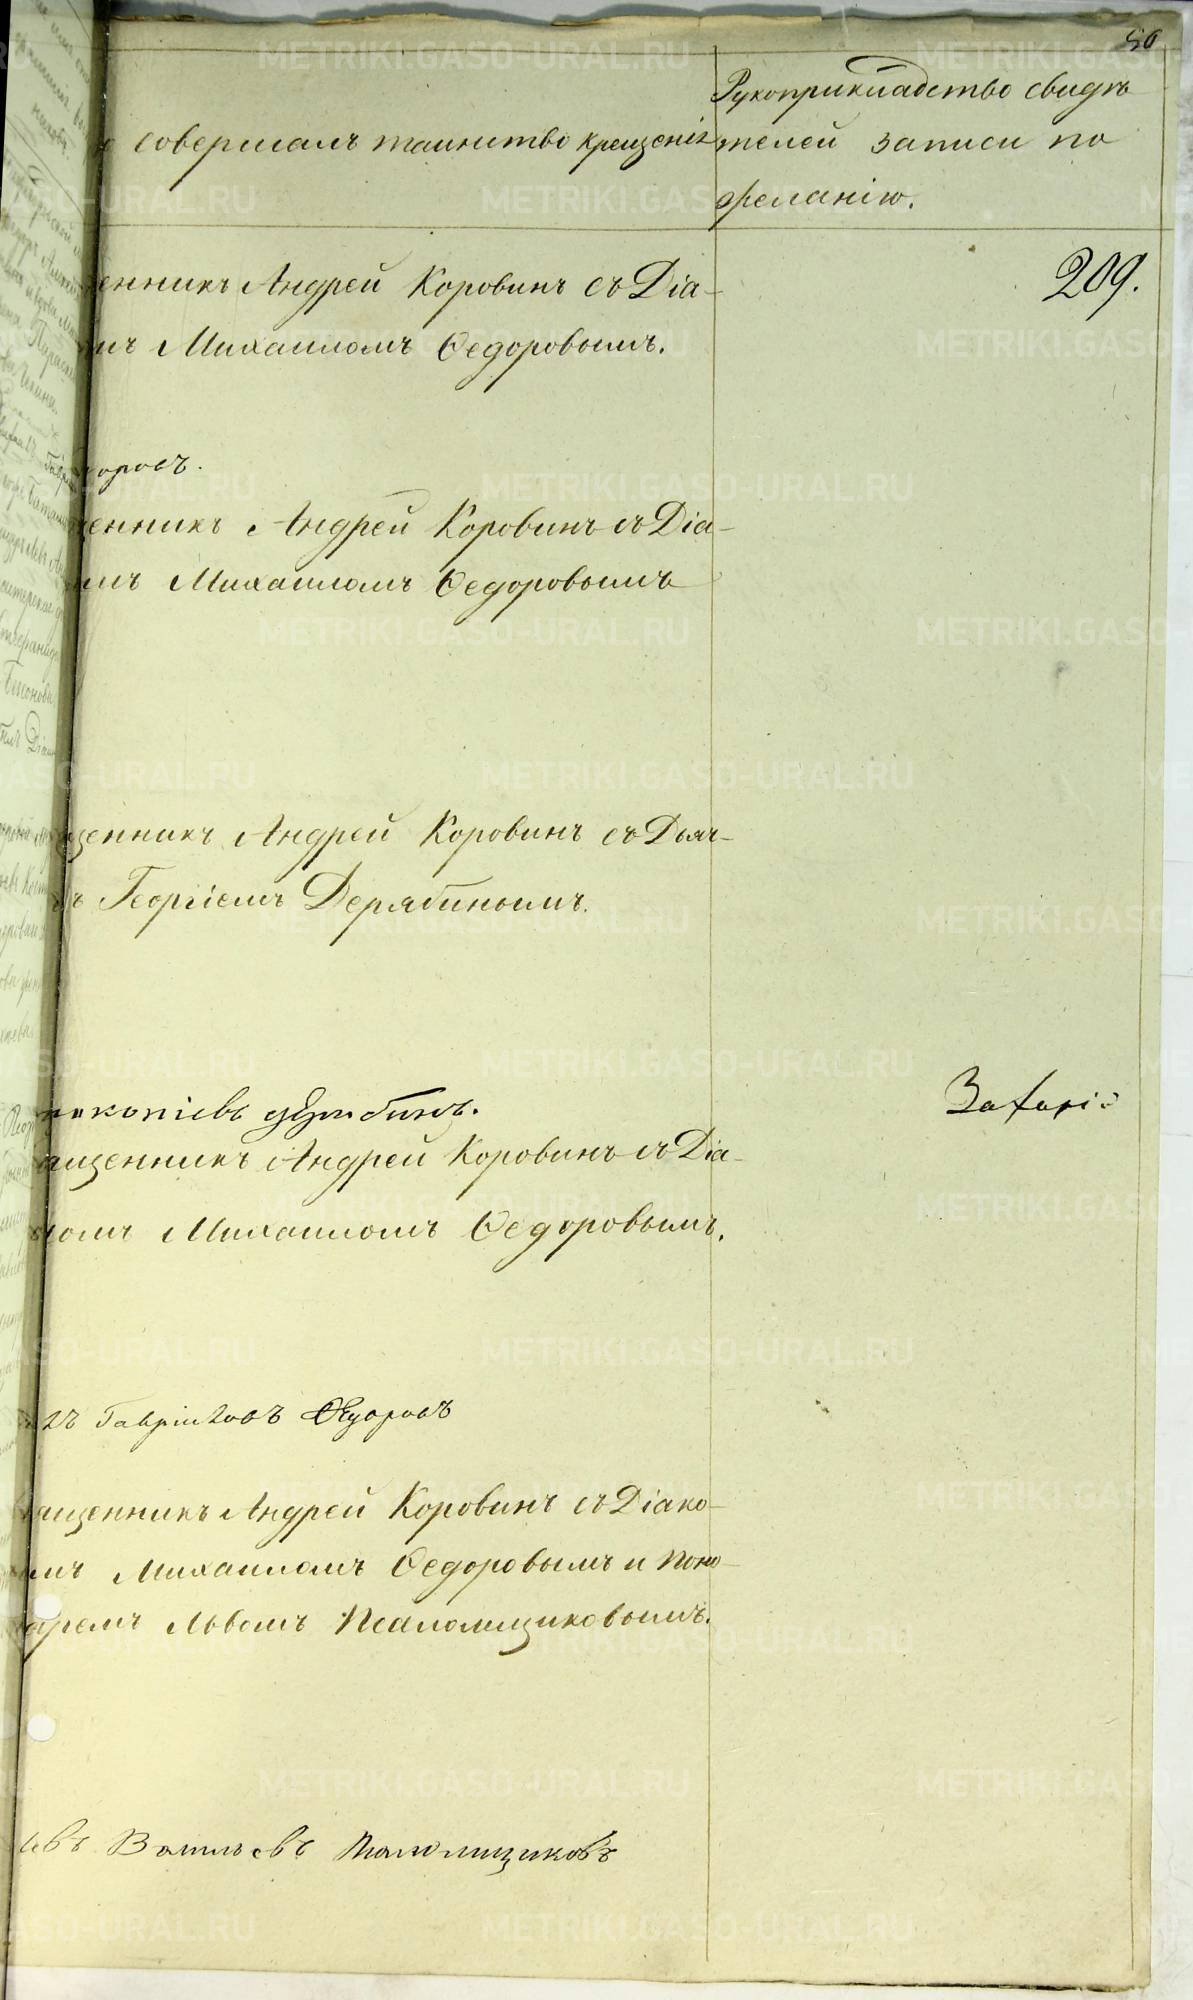 50
Рукоприкладство свидѣ
совершалъ таинство крещенія
телей записи по
желанію.
209.
енникъ Андрей Коровинъ съ Діа-
мъ Михаиломъ Ѳедоровымъ.
оровъ.
щенникъ Андрей Коровинъ съ Діа-
мъ Михаиломъ Ѳедоровымъ
щенникъ Андрей Коровинъ съ Дьяч-
ъ Георгіемъ Дерябинымъ.
Захарі
ркопіевъ дерябинъ.
ященникъ Андрей Коровинъ съ Діа-
номъ Михаиломъ Ѳедоровымъ.
лъ Гавріиловъ Ѳедоровъ
ященникъ Андрей Коровинъ съ Діако-
мъ Михаиломъ Ѳедоровымъ и Поно-
аремъ Львомъ Псаломщиковымъ.
евъ Васильевъ Псаломщиковъ
METRIKI.GASO-URAL.RU